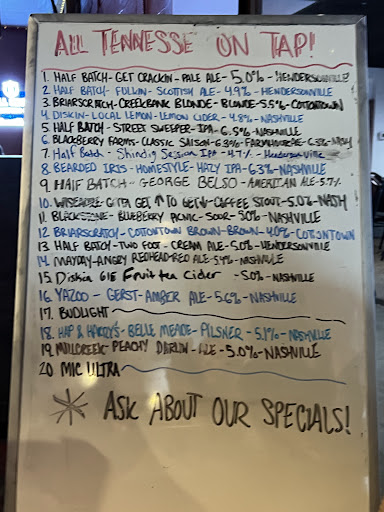 ALL TENNESSE ON TAP!
1. HALF BATCH - GET CRACKIN - PALE ALE - 5.0% - HENDERSONVILLE
2. HALF BATCH - FULLIN - SCOTTISH ALE - 4.9% - HENDERSONVILLE
3. BRIARSCRATCH - CREEKBANK BLONDE - BLONDE - 5.5% - COTTONTOWN
4. DISKIN - LOCAL LEMON - LEMON CIDER - 4.8% - NASHVILLE
5. HALF BATCH - STREET SWEEPER - IPA - 6.5% - NASHVILLE
6. BLACKBERRY FARMS - CLASSIC SAISON - 6.3% - FARMHOUSE ALE - 6.3% - NASH
7. Half Batch - Shindig Session IPA - 4.7% - Hendersonville
8. BEARDED IRIS - HOMESTYLE - HAZY IPA - 6.3% - NASHVILLE
9. HALF BATCH - GEORGE BELSO - AMERICAN ALE - 5.7%
10. WISEACRE - GOTTA GET ↑ TO GET ↓ - COFFEE STOUT - 5.0% - NASH
11. BLACKSTONE - BLUEBERRY PICNIC - SOUR - 5.0% - NASHVILLE
12. BRIARSCRATCH - COTTONTOWN BROWN - BROWN - 4.0% - COTTONTOWN
13. HALF BATCH - TWO FOOT - CREAM ALE - 5.0% - HENDERSONVILLE
14. MAYDAY - ANGRY REDHEAD - RED ALE - 5.9% - NASHVILLE
15. Diskin 615 Fruit tea Cider - 5.0% - NASHVILLE
16. YAZOO - GERST - AMBER ALE - 5.6% - NASHVILLE
17. BUDLIGHT
18. HAP & HARRY'S - BELLE MEADE - PILSNER - 5.1% - NASHVILLE
19. MILLCREEK - PEACHY DARLIN - ALE - 5.0% - NASHVILLE
20. MIC ULTRA
* ASK ABOUT OUR SPECIALS!